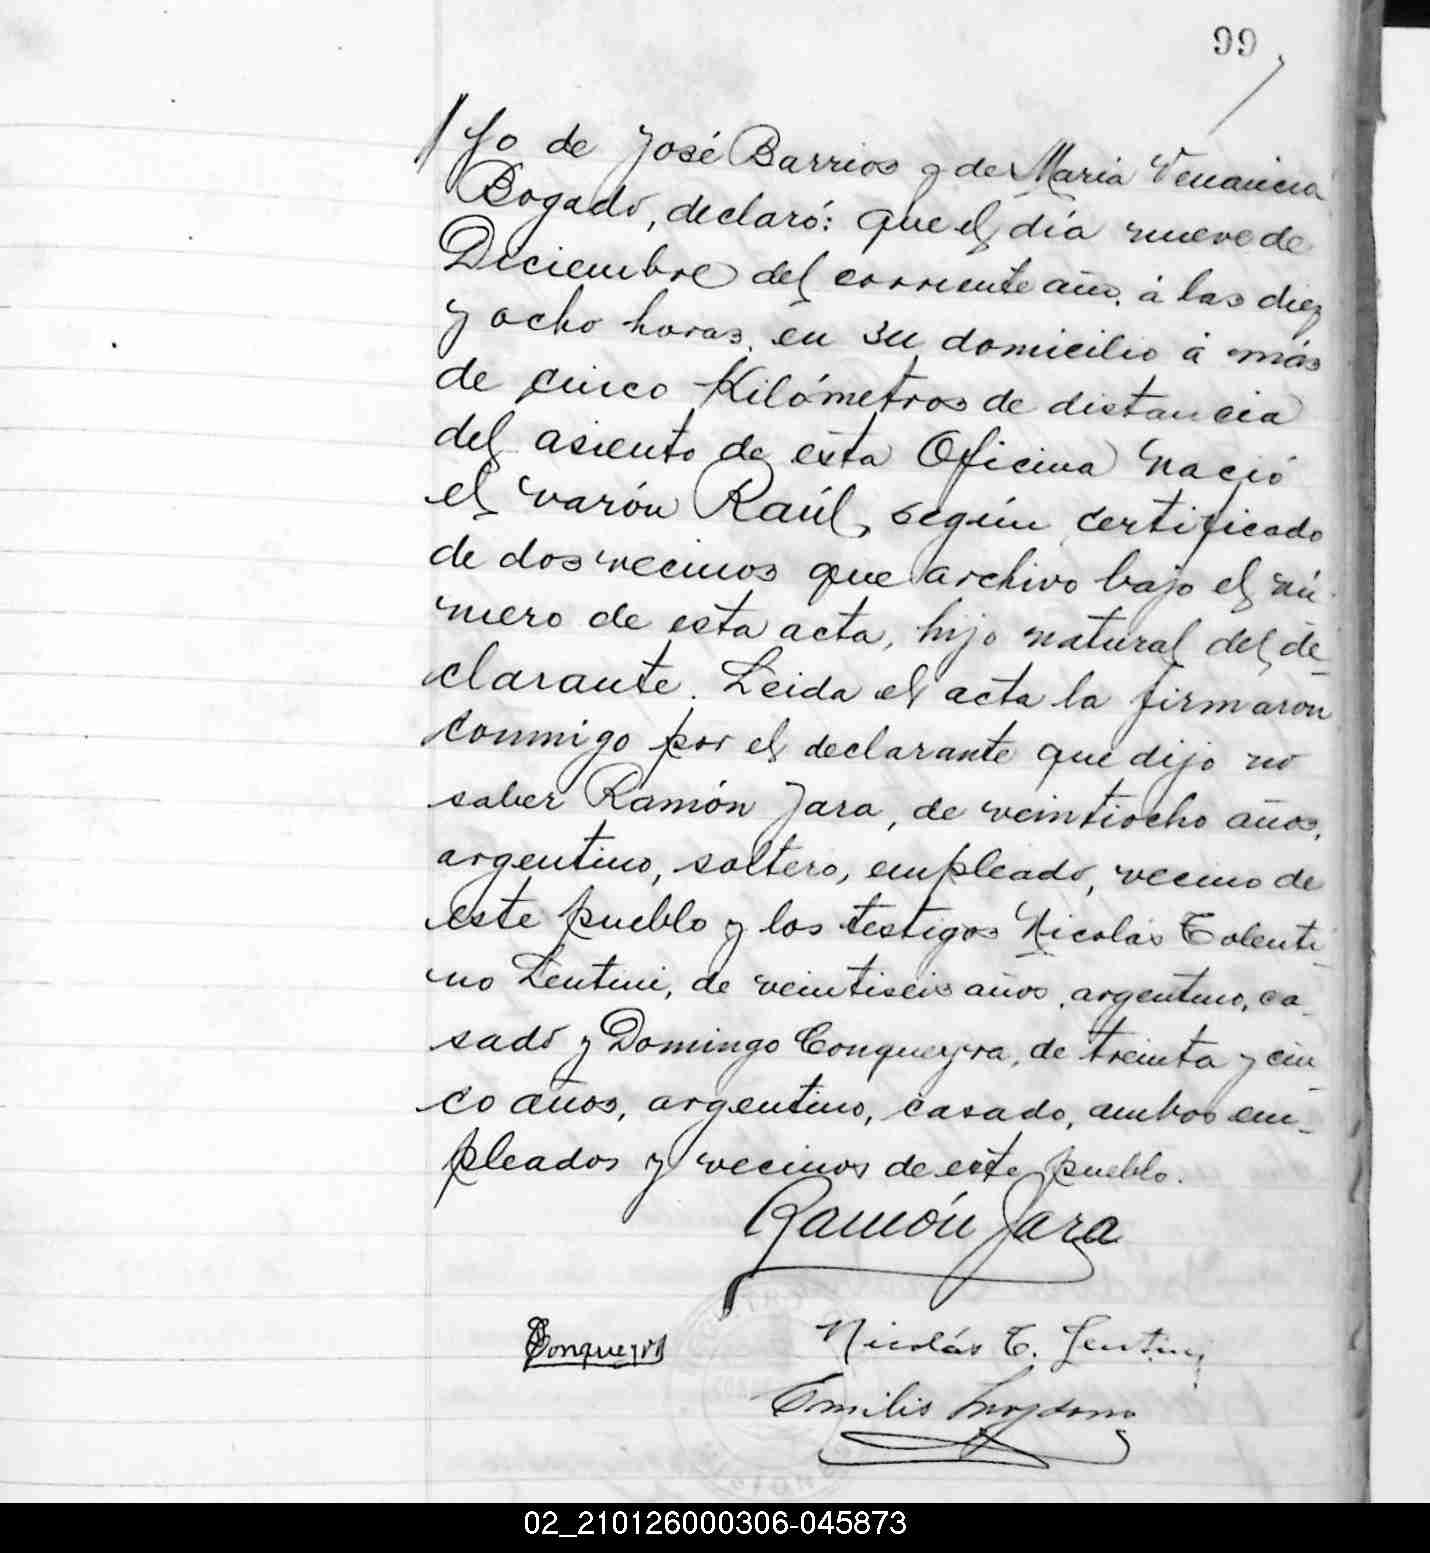 99
jo de José Barrios y de María Venancia
Bogado, declaró: que el día nueve de
Diciembre del corriente año, á las diez
y ocho horas, en su domicilio á más
de cinco Kilómetros de distancia
del asiento de esta Oficina nació
el varón Raúl, según certificado
de dos vecinos que archivo bajo el nú-
mero de esta acta, hijo natural del de-
clarante. Leida el acta la firmaron
conmigo por el declarante que dijo no
saber Ramón Jara, de veintiocho años,
argentino, soltero, empleado, vecino de
este pueblo y los testigos Nicolás Tolenti-
no Lentini, de veintiseis años, argentino, ca-
sado y Domingo Conqueyra, de treinta y cin-
co años, argentino, casado, ambos em-
pleados y vecinos de este pueblo.
Ramón Jara
Conqueyra
Nicolás T. Lentini
Emilio
02_210126000306-045873